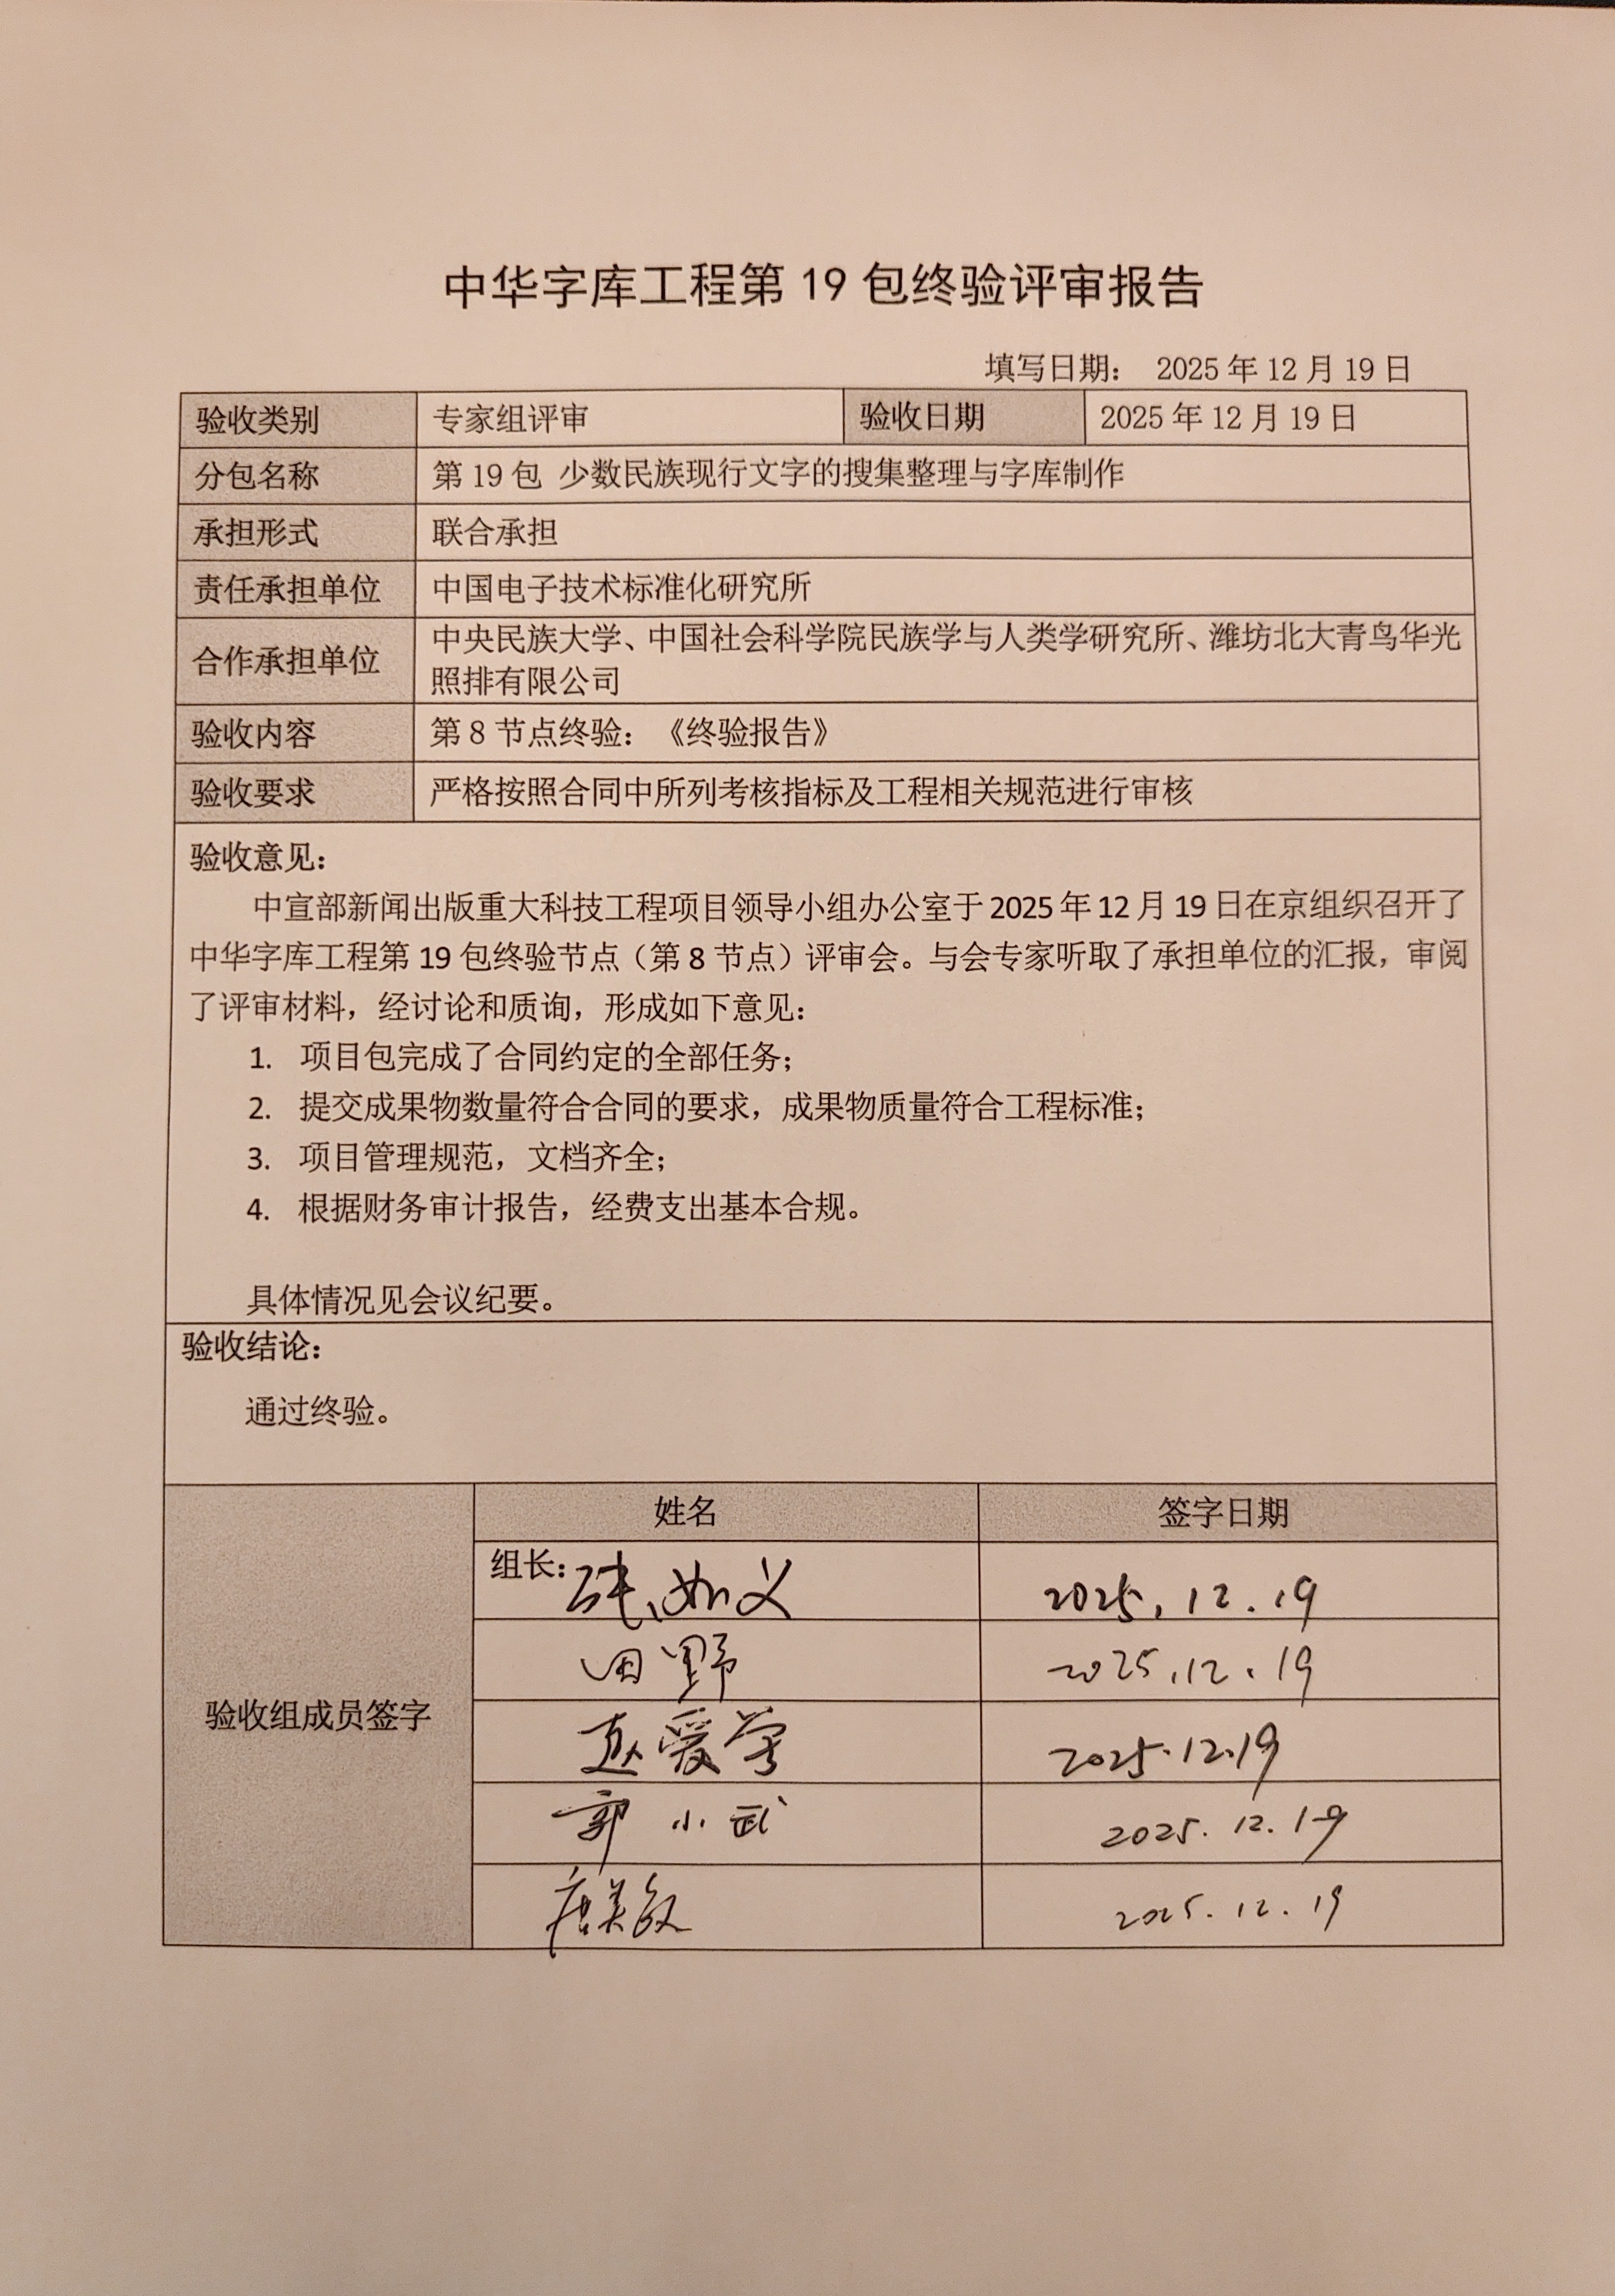 中华字库工程第 19 包终验评审报告
填写日期： 2025 年 12 月 19 日
验收类别 专家组评审 验收日期 2025 年 12 月 19 日
分包名称 第 19 包 少数民族现行文字的搜集整理与字库制作
承担形式 联合承担
责任承担单位 中国电子技术标准化研究所
合作承担单位 中央民族大学、中国社会科学院民族学与人类学研究所、潍坊北大青鸟华光
照排有限公司
验收内容 第 8 节点终验：《终验报告》
验收要求 严格按照合同中所列考核指标及工程相关规范进行审核
验收意见：
中宣部新闻出版重大科技工程项目领导小组办公室于 2025 年 12 月 19 日在京组织召开了
中华字库工程第 19 包终验节点（第 8 节点）评审会。与会专家听取了承担单位的汇报，审阅
了评审材料，经讨论和质询，形成如下意见：
1. 项目包完成了合同约定的全部任务；
2. 提交成果物数量符合合同的要求，成果物质量符合工程标准；
3. 项目管理规范，文档齐全；
4. 根据财务审计报告，经费支出基本合规。
具体情况见会议纪要。
验收结论：
通过终验。
验收组成员签字 姓名 签字日期
组长： 2025.12.19
田野 2025.12.19
赵爱学 2025.12.19
郭小武 2025.12.19
唐美 2025.12.19